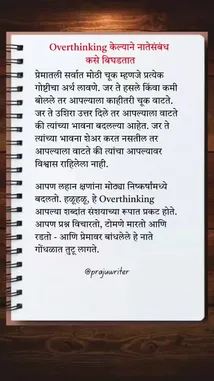 Overthinking केल्याने नातेसंबंध
कसे बिघडतात
प्रेमातली सर्वात मोठी चूक म्हणजे प्रत्येक
गोष्टीचा अर्थ लावणे. जर ते हसले किंवा कमी
बोलले तर आपल्याला काहीतरी चूक वाटते.
जर ते उशिरा उत्तर दिले तर आपल्याला वाटते
की त्यांच्या भावना बदलल्या आहेत. जर ते
त्यांच्या भावना शेअर करत नसतील तर
आपल्याला वाटते की त्यांचा आपल्यावर
विश्वास राहिलेला नाही.
आपण लहान क्षणांना मोठ्या निष्कर्षांमध्ये
बदलतो. हळूहळू, हे Overthinking
आपल्या शब्दांत संशयाच्या रूपात प्रकट होते.
आपण प्रश्न विचारतो, टोमणे मारतो आणि
रडतो - आणि प्रेमावर बांधलेले हे नाते
गोंधळात तुटू लागते.
@prajuwriter